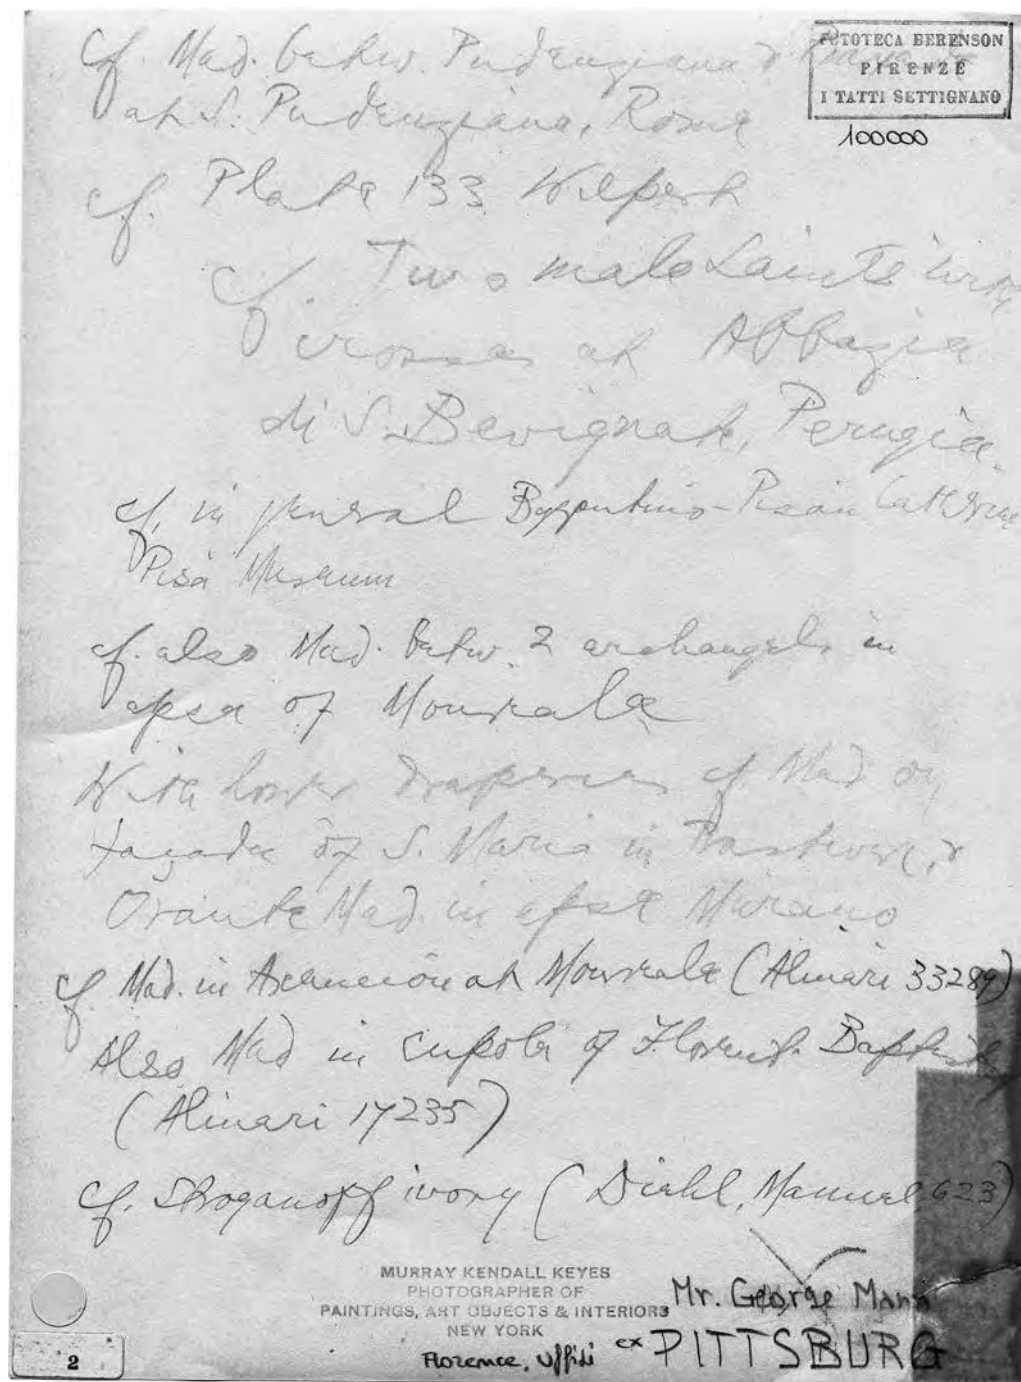 cf. Mad. betw. Pudenziana &
at S. Pudenziana, Rome
FOTOTECA BERENSON
FIRENZE
I TATTI SETTIGNANO
100000
cf. Plate 133 Wilpert
cf. Two male Saints with
crosses at Abbazia
di S. Bevignate, Perugia.
cf. in general Byzantino-Pisan Catherine
Pisa Museum
cf. also Mad. betw. 2 archangels in
apse of Monreale
With lower draperies cf Mad on
façade of S. Maria in Trastevere, &
Orante Mad. in apse Murano
cf Mad. in Ascension at Monreale (Alinari 33289)
Also Mad in cupola of Florent. Baptistery
(Alinari 17235)
cf. Stroganoff ivory (Diehl, Manuel, 623)
MURRAY KENDALL KEYES
PHOTOGRAPHER OF
PAINTINGS, ART OBJECTS & INTERIORS
NEW YORK
Mr. George Mann
Florence, Uffizi
ex PITTSBURG
2